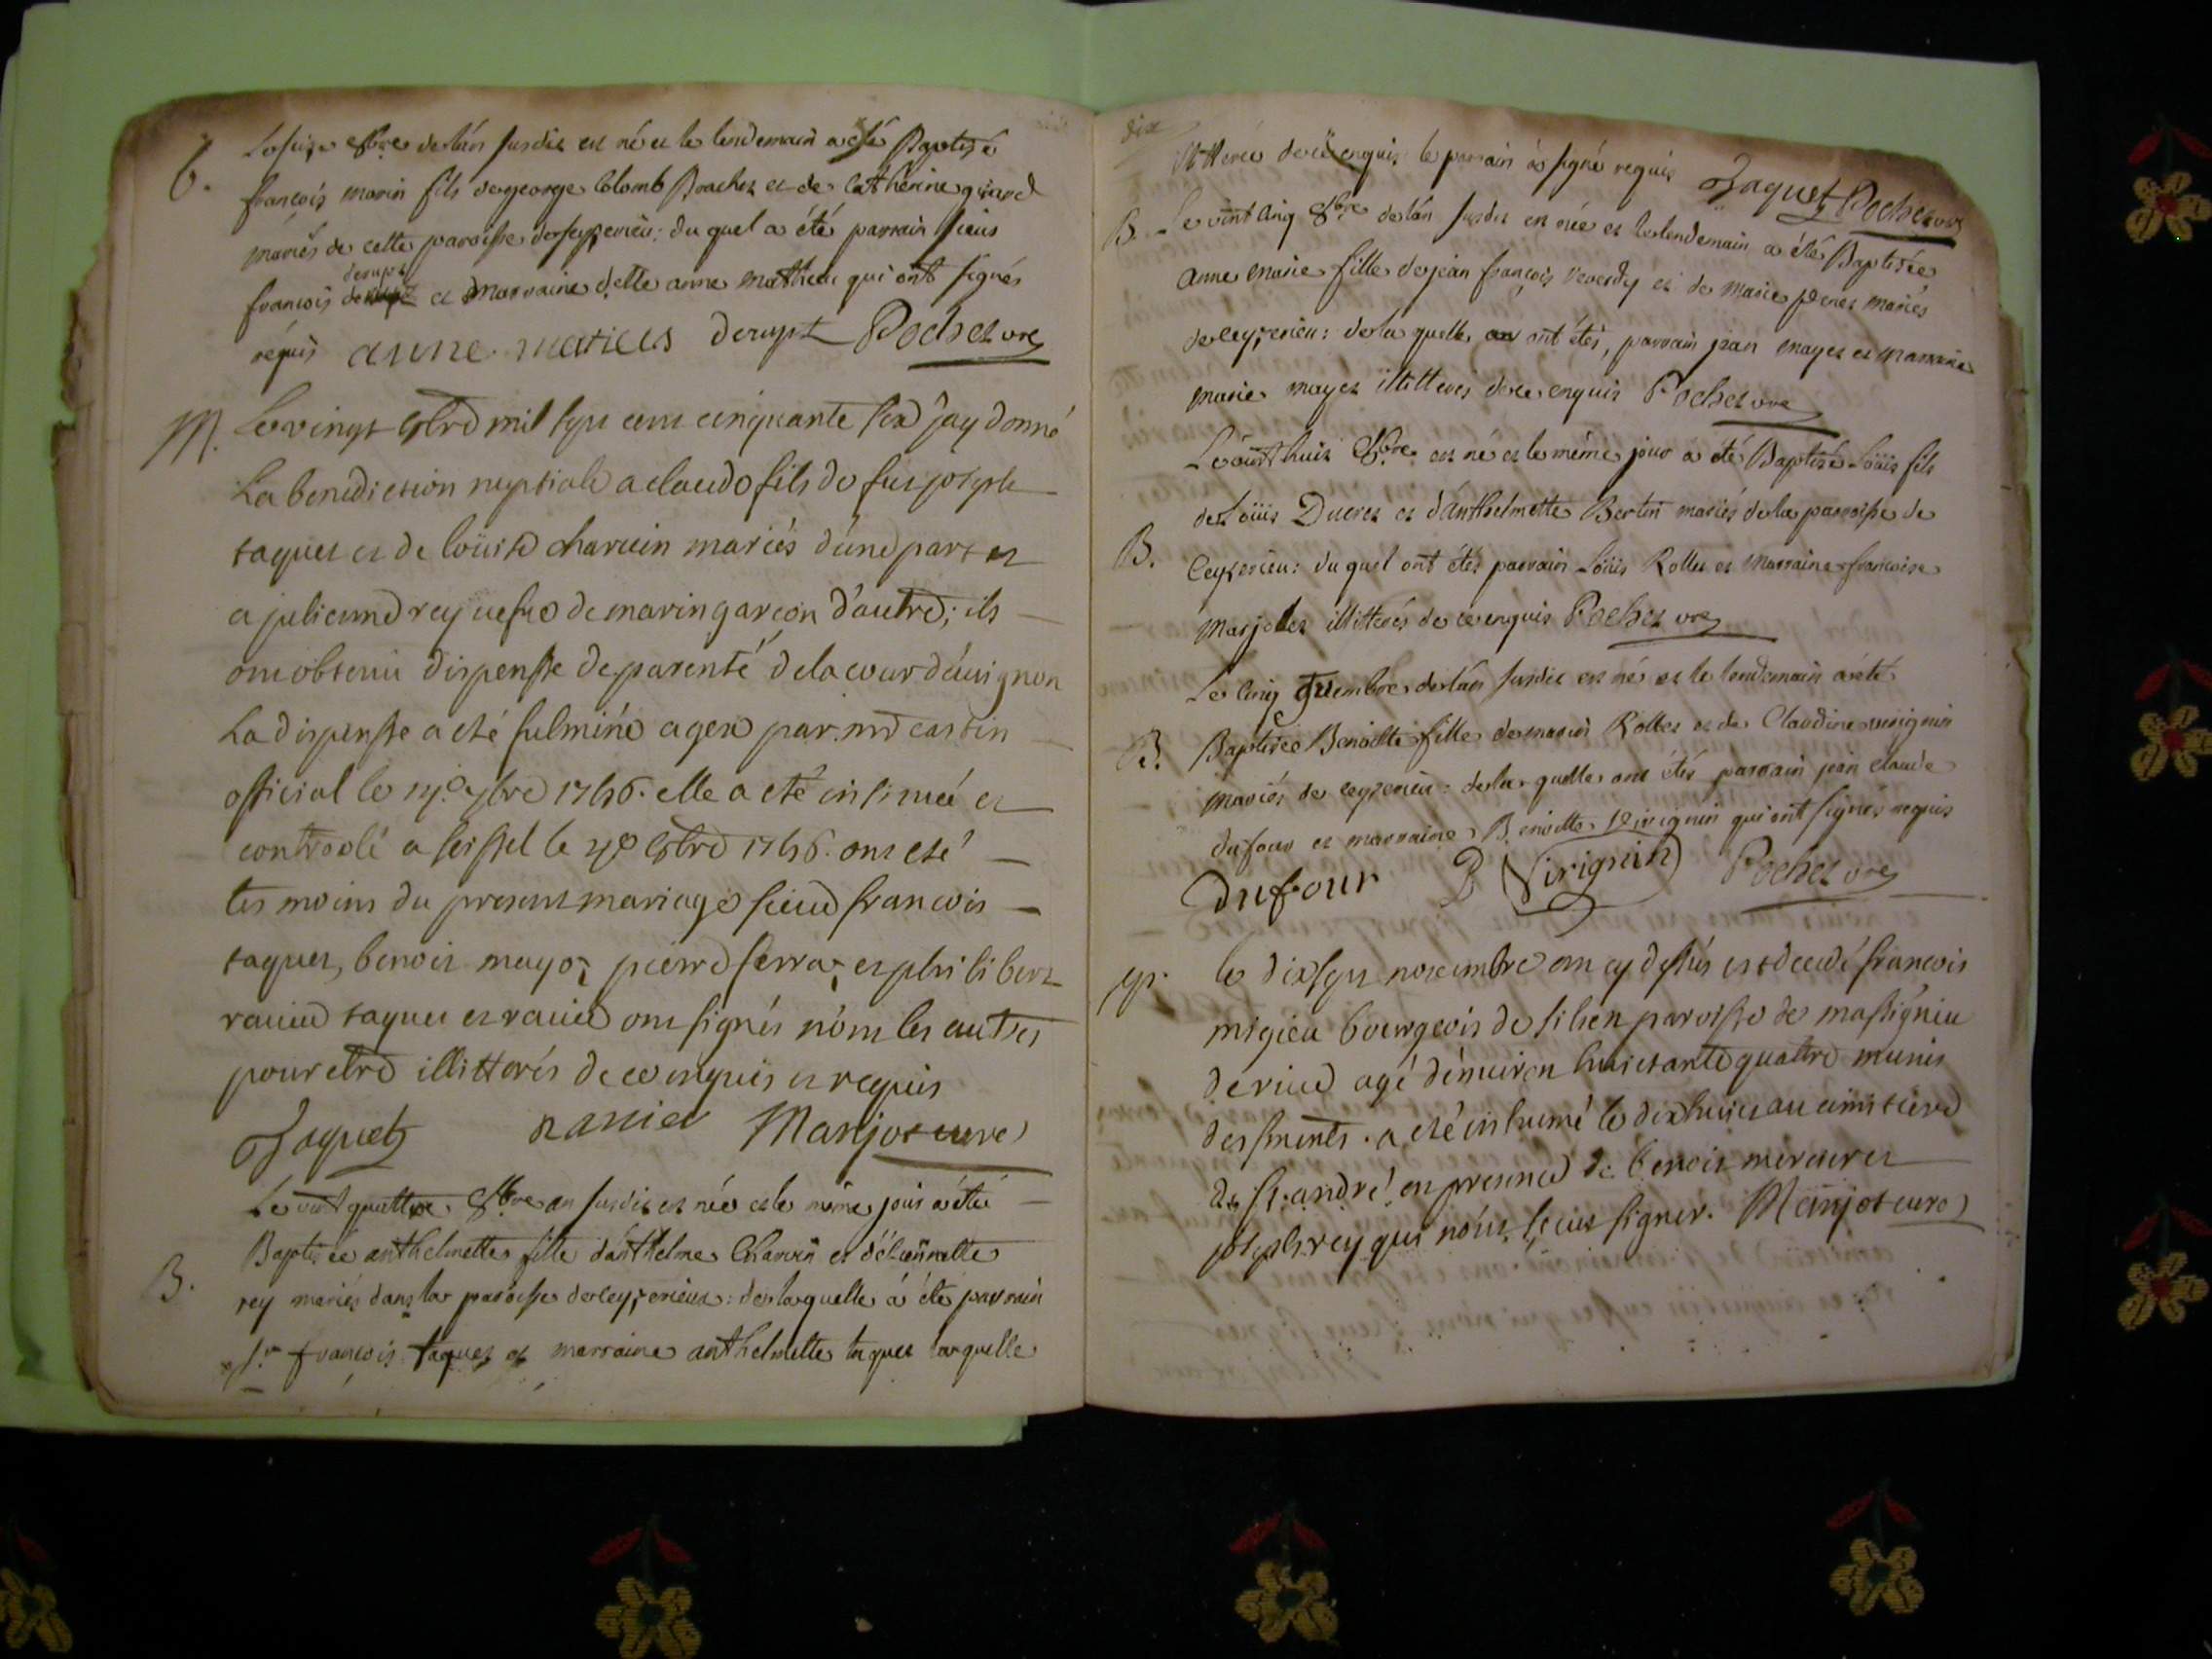 B.
Le seize 8bre de lan susdit est né et le lendemain a été Baptisé
françois marin fils de george Colomb Brachet et de Catherine girard
mariés de cette paroisse de ceyzerieu: du quel a été parrain sieur
derupt
françois et Marraine delle anne mathieu qui ont signés
requis anne matieus derupt Pochet vre
M. Le vingt 8bre mil sept cent cinquante six jay donné
La benediction nuptiale a claude fils de fut joseph
taquet et de loüise charvin mariés d'une part et
a julienne rey veufve de marin garcon d'autre; ils
ont obtenu dispense de parenté de la cour d'avignon
La dispense a eté fulminé a gex par mr castin
official le 7bre 1756. elle a eté insinuée et
controolé a seissel le 8bre 1756. ont eté
tesmoins du present mariage sieur francois
taquet, benoit mayot pierre serra et philibert
ravier taquet et ravier ont signés nóm les autres
pour etre illitterés de ce enquis et requis
Jaquet ravier Marjot curé
Le vint quattre 8bre an susdit est née et le même jour a été
B. Baptisée anthelmette fille d'anthelme Charvin et d'étiennette
rey mariés dans la paroisse de ceyzerieux: de la quelle a été parrain
sr françois taquet et marraine anthelmette taquet laquelle
dix
illitterée de ce enquis le parrain a signé requis Jaquet Pochet vre
B. Le vint cinq 8bre de lan susdit est née et le lendemain a été Baptisée
Anne Marie fille de jean françois Reverdy et de Marie perret mariés
de ceyzerieu: de la quelle ont étés, parrain jean mayet et marraine
marie mayet illitterés de ce enquis Pochet vre
Le vint huit 8bre est né et le même jour a été Baptisé Loüis fils
de Loüis Ducret et d'Anthelmette Bertin mariés de la paroisse de
B. Ceyzerieu: du quel ont étés parrain Loüis Rollet et Marraine francoise
Marjollet illitterés de ce enquis Pochet vre
Le cinq 9vembre de lan susdit est né et le lendemain a été
B. Baptisée Benoitte fille de marin Rollet et de Claudine virignin
mariés de ceyzerieu: de la quelle ont étés parrain jean claude
dufour et marraine Benoitte Virignin qui ont signés requis
Dufour B Virignin Pochet vre
le dixsept novembre an cy dessus est decedé francois
migieu bourgeois de silien paroisse de massignieu
de rive agé dénviron huictante quattre munis
des smrents. a eté inhumé le dix huit au cimitiere
de st. andré en presence de benoit mercier et
joseph rey qui nónt sceus signer. Marjot curé